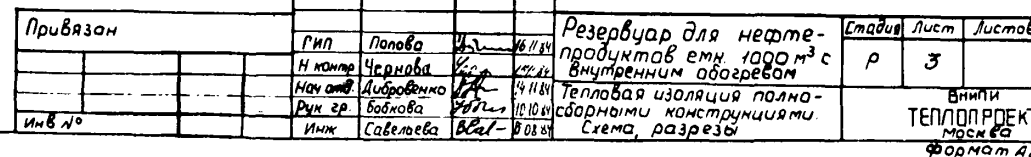 Привязан
Инв №
ГИП Попова 16.11.84
Н контр Чернова
Нач отд. Дибровенко 14.11.84
Рук гр. Бобкова 10.10.84
Инж Савельева
Резервуар для нефте-
продуктов емк. 1000 м³ с
внутренним обогревом
Тепловая изоляция полно-
сборными конструкциями.
Схема, разрезы
Стадия Лист Листов
Р 3
ВНИПИ
ТЕПЛОПРОЕКТ
Москва
Формат А